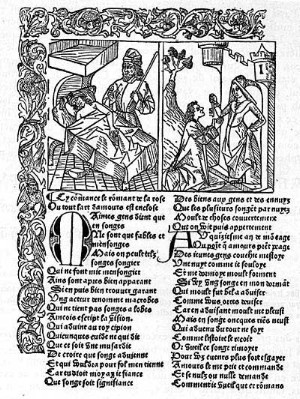 Cy cōmance le rōmant de la rose
Ou tout lart damours est enclose
Maintes gens dient que
en songes
Ne sont que fables et
mensonges
Mais on peult telz
songes songier
Qui ne font mie mensongier
Ains sont apres bien apparant
Si en puis bien trouver garant
Ung acteur nommé macrobes
Qui ne tient pas songes a lobes
Aincois escript la
Qui advint au roy cipion
Quicunques cuide ne qui die
Que ce soit une musardie
De croire que songe advienne
Et qui vouldra pour fol men tienne
Car endroit moy ay ie fiance
Que songe soit signifiance
Des biens aux gens et des ennuys
Que les plusieurs songent par nuyt
Moult de choses couvertement
Quon voit puis appertement
Au mon aage
Ou point q̄ amours prēt paage
Des ieunes gens couchie mestoye
Une nuyt comme ie souloye
Et me dormoye moult forment
Si vy ung songe en mon dormāt
Qui moult fut bel a
Comme vous orrez
Car en advisant moult me pleust
Et en songe onques riens neust
Qui advenu du tout ne soit
Comme listoire le recoit
Or vueil ce songe rimoyer
Pour voz cueurs plus fort esgayer
Amours le me prie et commande
Et se nulz ou nulle demande
Comment ie vueil que ce rōmans